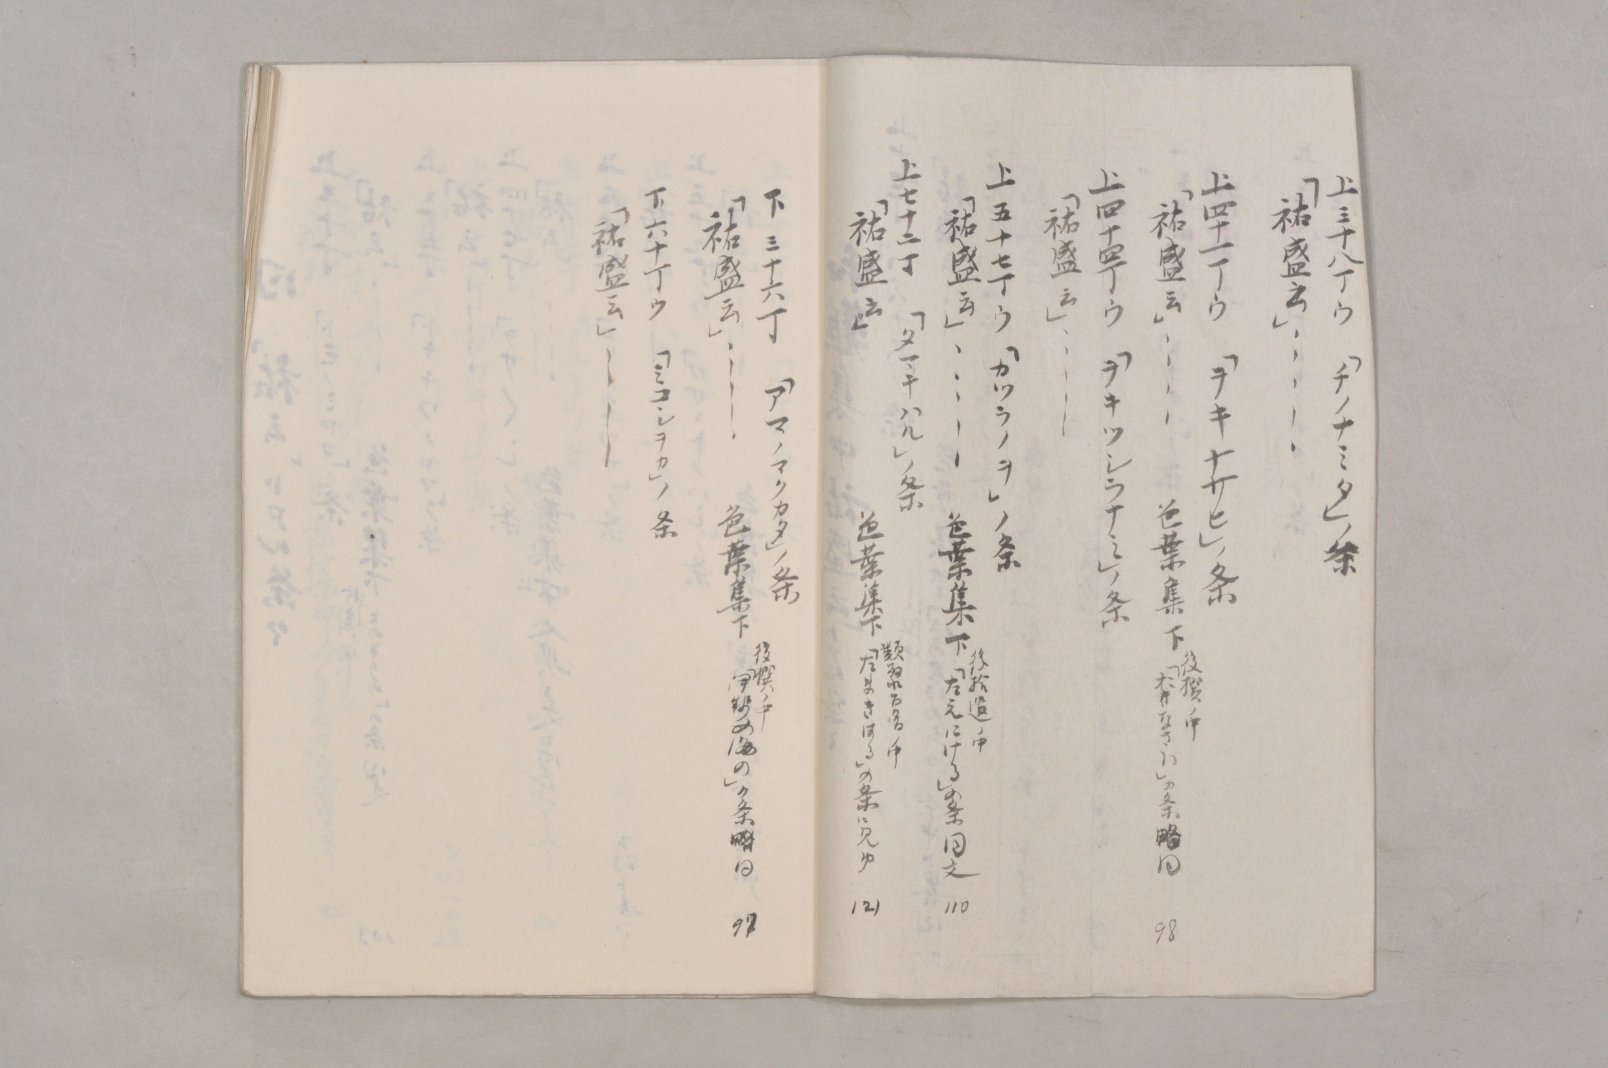 上三十八丁ウ 「チノナミタ」ノ条
「祐盛云」、、、、
上四十一丁ウ 「ヲキナサヒ」ノ条
「祐盛云」、、、、 色葉集下 後撰ノ中「翁なさひ」の条略同 98
上四十四丁ウ 「ヲキツシラナミ」ノ条
「祐盛云」、、、、
上五十七丁ウ 「カツラノヲ」ノ条
「祐盛云」、、、、 色葉集下 後拾遺ノ中「たえにける」の条同文 110
上七十二丁 「タマキハル」ノ条
「祐盛云」 色葉集下 類聚百首ノ中「たまきはる」の条に見ゆ 121
下三十六丁 「アマノマクカタ」ノ条
「祐盛云」、、、、 色葉集下 後撰ノ中「伊勢の海の」の条略同 97
下六十丁ウ 「ミコシヲカ」ノ条
「祐盛云」、、、、